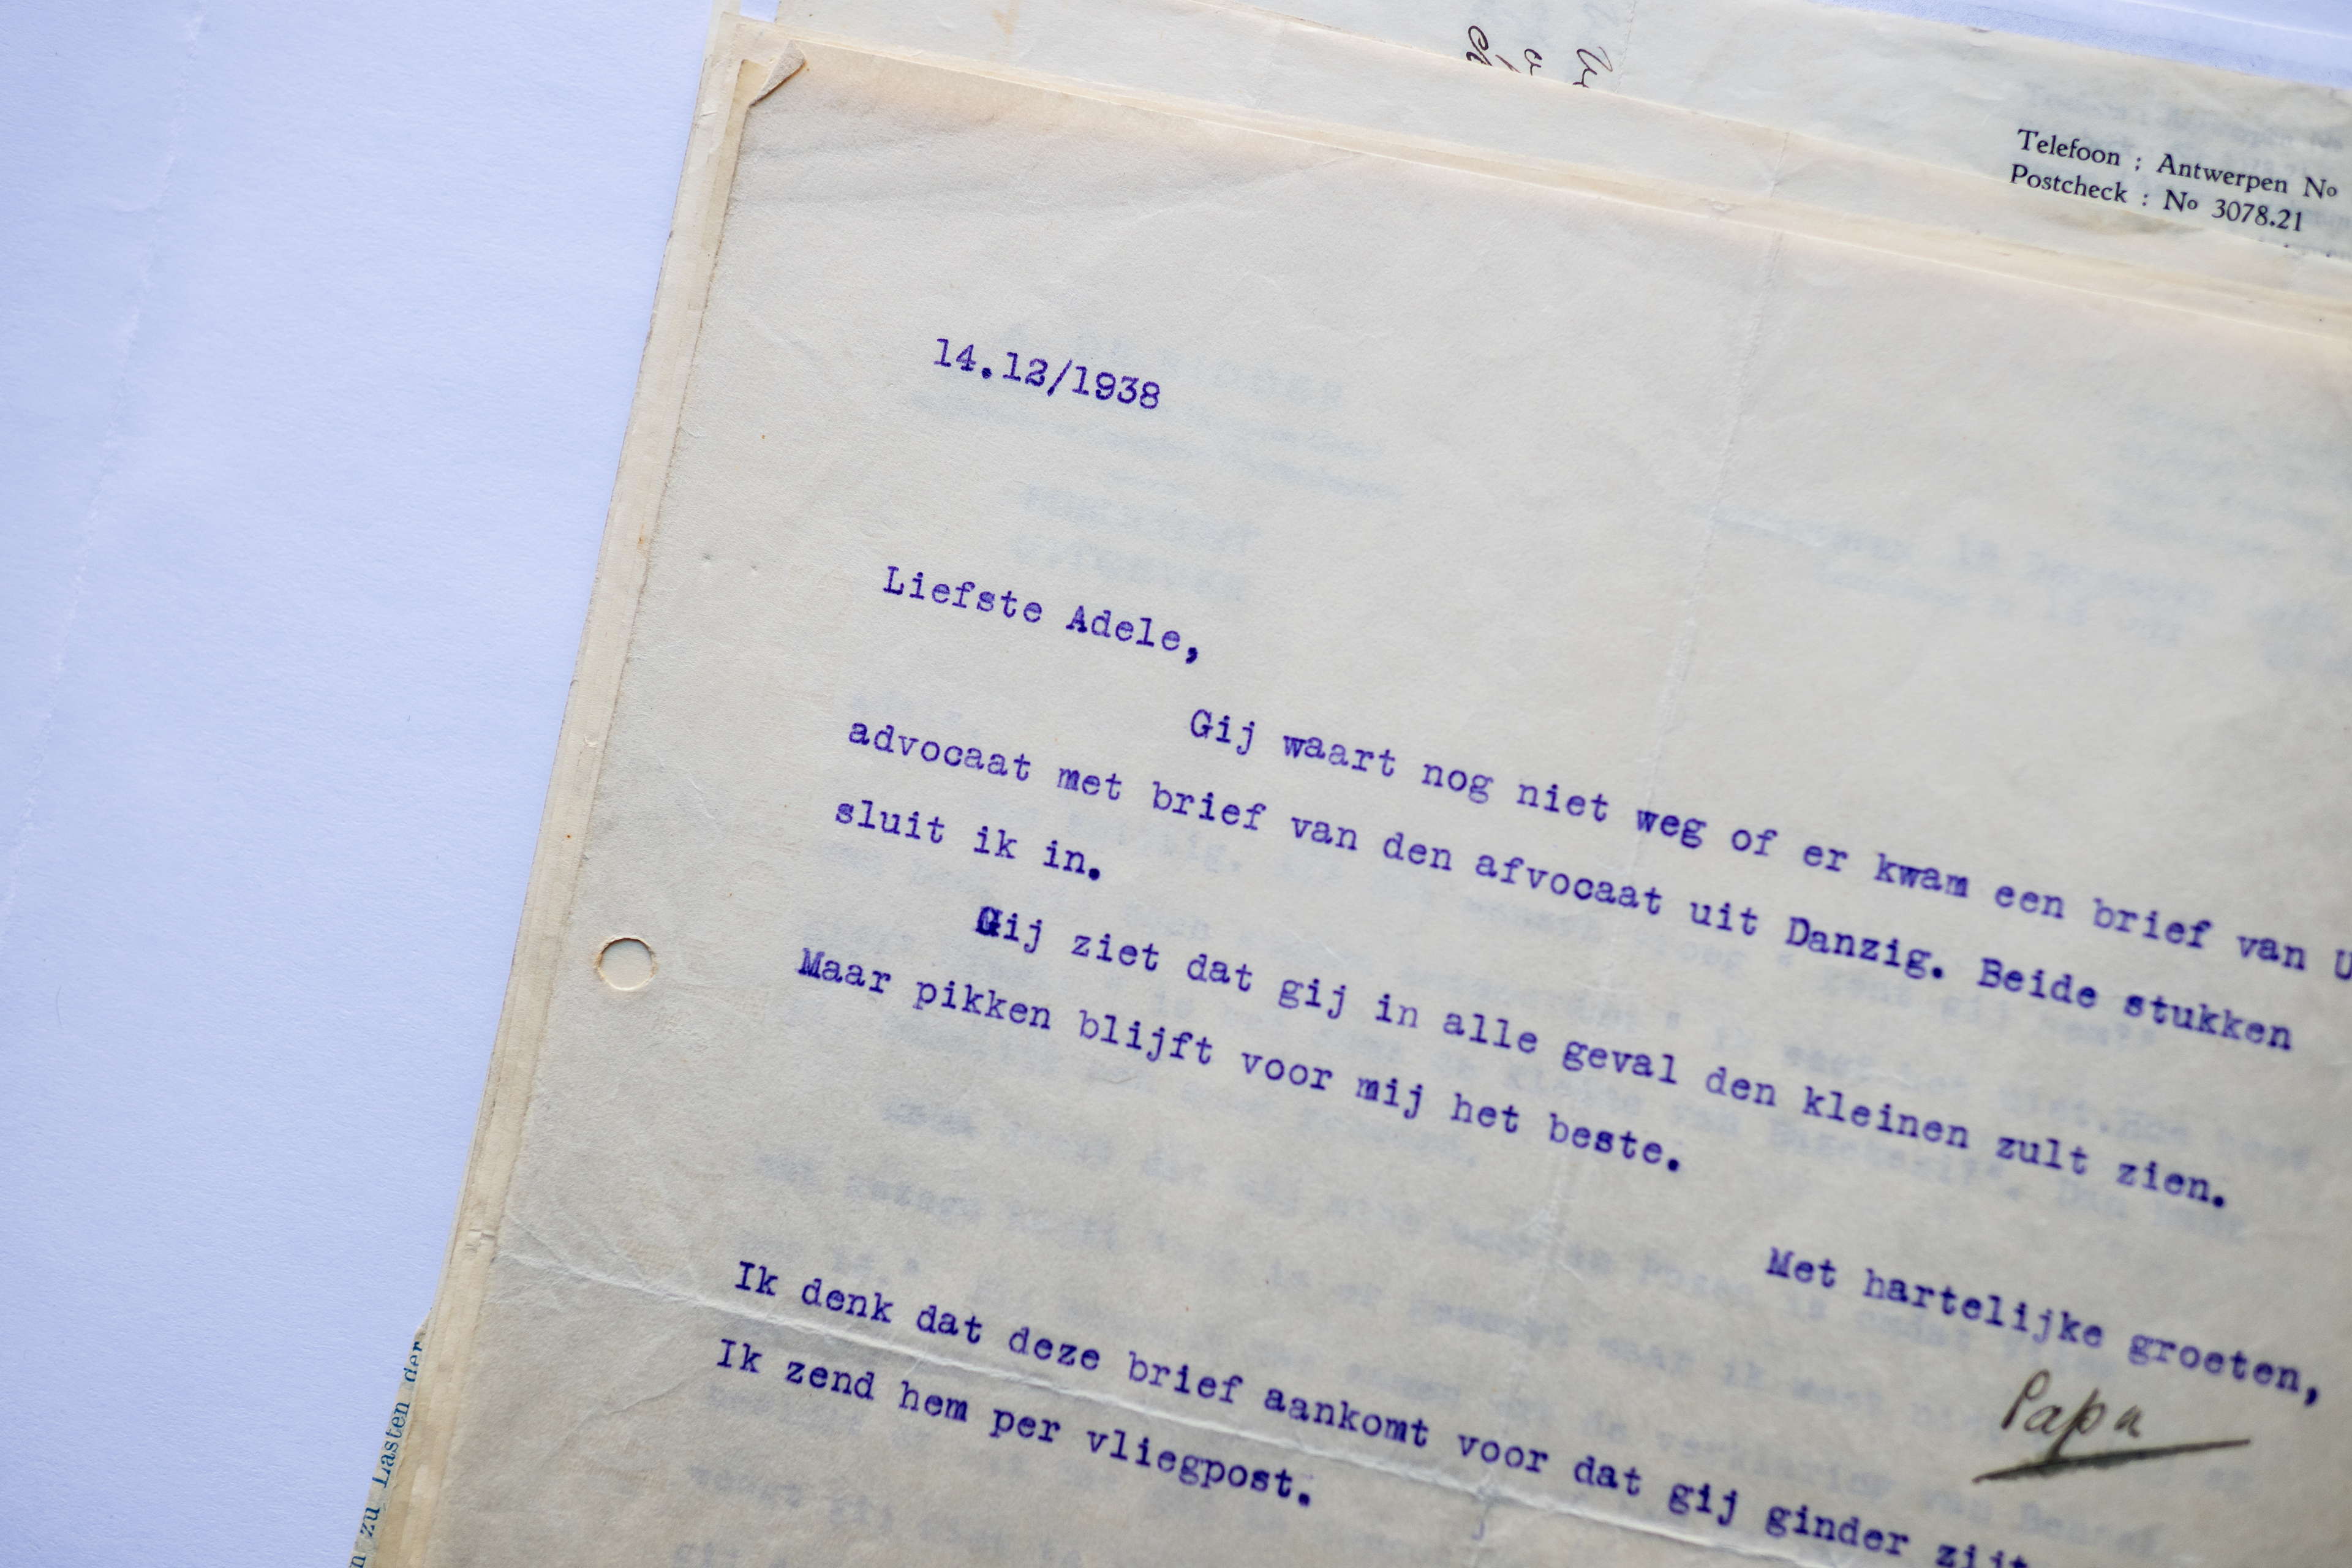 Telefoon : Antwerpen No
Postcheck : No 3078.21
14.12/1938
Liefste Adele,
Gij waart nog niet weg of er kwam een brief van U
advocaat met brief van den afvocaat uit Danzig. Beide stukken
sluit ik in.
Gij ziet dat gij in alle geval den kleinen zult zien.
Maar pikken blijft voor mij het beste.
Met hartelijke groeten,
Papa
Ik denk dat deze brief aankomt voor dat gij ginder zijt
Ik zend hem per vliegpost.
zu Lasten der